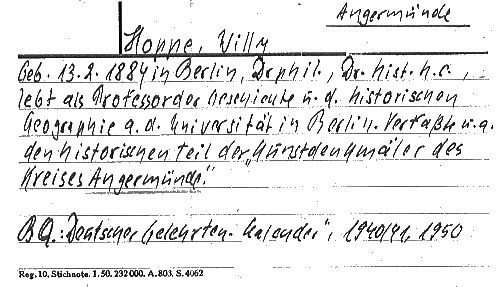 Angermünde
Hoppe, Willy
Geb. 13.2.1884 in Berlin, Dr.phil., Dr. hist. h.c.,
lebt als Professor der Geschichte u. d. historischen
Geographie a.d. Universität in Berlin. Verfaßte u.a.
den historischen Teil der „Kunstdenkmäler des
Kreises Angermünde."
BQ.: Deutscher Gelehrten-Kalender", 1940/41, 1950
Reg. 10, Stichnote. 1. 50. 232 000. A. 803. S. 4062